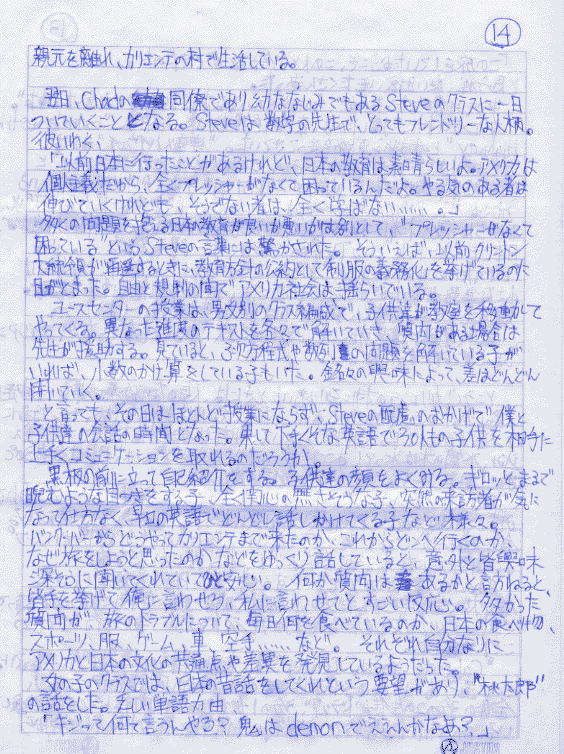 14
親元を離れ、カリエンテの村で生活している。
翌日、Chadの同僚であり幼ななじみでもあるSteveのクラスに一日
ついていくこととなる。Steveは数学の先生で、とってもフレンドリーな人柄。
彼いわく、
「以前日本に行ったことがあるけれど、日本の教育は素晴らしいよ。アメリカは
個人主義だから、全くプレッシャーがなくて困っているんだ。やる気のある者は
伸びていくけれども、そうでない者は、全く延びない……。」
多くの問題を抱える日本の教育が良いか悪いかは別として、"プレッシャーがなくて
困っている"というSteveの言葉には驚かされた。そういえば、以前クリントン
大統領が再選するときに、教育方針の公約として制服の義務化を挙げているのに
目がとまった。自由と規則の間でアメリカ社会は揺らいでいる。
ユースセンターの授業は、男女別のクラス構成で、子供達が教室を移動して
やってくる。異なった進度のテキストを各々で解いていき、質問がある場合は
先生が援助する。見ていると、2次方程式や数列の問題を解いている子が
いれば、小数のかけ算をしている子もいた。各々の興味によって、差はどんどん
開いていく。
と言っても、その日はほとんど授業にならず、Steveの配慮のおかげで僕と
子供達の会話の時間となった。果して下手くそな英語で30人もの子供を相手に
上手くコミュニケーションを取れるのだろうか。
黒板の前に立って自己紹介をする。子供達の顔をよくみる。ギロッとまるで
睨むような目つきをする子、全く関心の無さそうな子、突然の来訪者が気に
なって仕方なく早口の英語でどんどん話しかけてくる子など様々。
バンクーバーからどうやってカリエンテまで来たのか、これからどこへ行くのか、
なぜ旅をしようと思ったのかなどをゆっくり話していると、意外と皆興味
深そうに聞いてくれていてひと安心。何か質問はあるかと言われると、
皆手を挙げて俺に言わせろ、私に言わせてとすごい反応。多かった
質問が、旅のトラブルについて、毎日何を食べているのか、日本の食べ物、
スポーツ、服、ゲーム、車、空手……など。それぞれ自分なりに
アメリカと日本の文化の共通点や差異を発見しているようだった。
女の子のクラスでは、日本の昔話をしてくれという要望があり、"桃太郎"
の話をした。乏しい単語力由
「キジって何て言うんやろ？鬼はdemonでええんかなあ？」